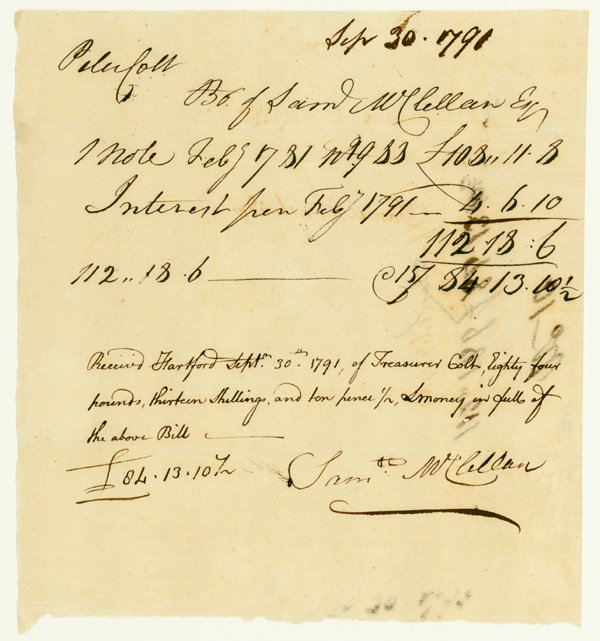 Sep 30. 1791
Peter Colt
Bo. of Saml McClellan Esq
1 Note Feby 1781 No 983 £108,, 11. 8
Interest from Feby 1791 — 4. 6. 10
112. 18. 6
112 ,, 18. 6 — @ 15/ 84. 13. 10½
Received Hartford Septr. 30th. 1791, of Treasurer Colt, Eighty four
pounds, thirteen Shillings, and ten pence ½, Lmoney in full of
the above Bill —
£84. 13. 10½ Saml McClellan